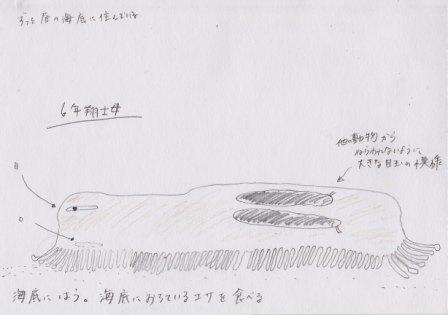 ずっと底の海底に住んでいる
6年翔士母
他の動物から
ねらわれないように、
大きな目玉の模様
目
口
海底にはう。海底におちているエサを食べる